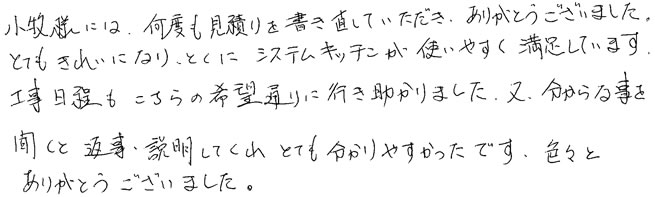 小牧様には、何度も見積りを書き直していただき、ありがとうございました。
とてもきれいになり、とくに システムキッチンが 使いやすく 満足しています。
工事日程も こちらの希望通りに行き助かりました。又、分からな事を
聞くと 返事・説明してくれ とても分かりやすかったです。色々と
ありがとうございました。